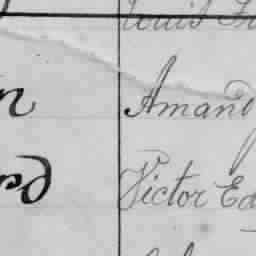 n Amand
rd Victor Ed